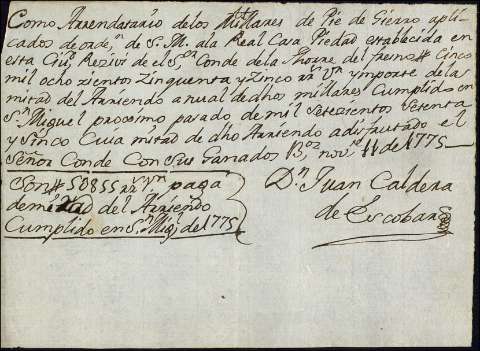 Como Arrendatario delos Millares de Pie de Gierro apli-
cados de orde,n de S. M. ala Real Casa Piedad establecida en
esta Ciu,d Rezivi de el S,or Conde de la Thorre del fresno# Cinco
mil ocho zientos Zinquenta y Zinco rr,s V,n ymporte de la
mitad del Arriendo anual de dhos millares Cumplido en
S,n Miguel procsimo pasado de mil setezientos Setenta
y Sinco Cuia mitad de dho Arriendo adisfrutado el
Señor Conde Con sus Ganados B,oz nov,e 11 de 1775
Son# 50855 rr,s v,n paga
de mitad del Arriendo
Cumplido en S,n Mig,l de 1775
D,n Juan Caldera
de Escobar